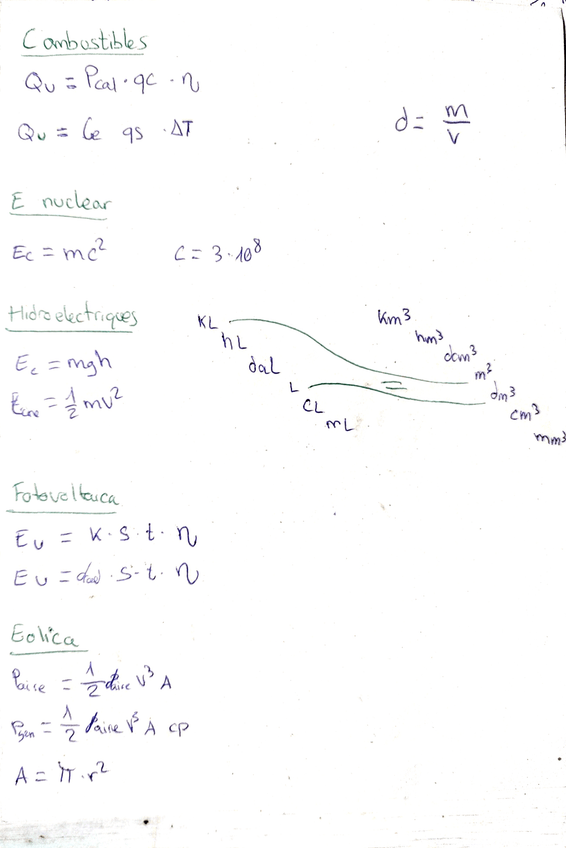 Combustibles
Qu = Pcal · qc · η
Qu = Ce qs · ΔT
d = m/v
E nuclear
Ec = mc²
C = 3·10⁸
Hidroelectriques
Ec = mgh
= 1/2 mv²
KL
hL
daL
L
CL
mL
=
Km³
hm³
dcm³
m³
dm³
cm³
mm³
Fotovoltaica
Eu = K · S · t · η
Eu = · S · t · η
Eolica
Paire = 1/2 ρaire V³ A
Pgen = 1/2 ρaire V³ A cp
A = π · r²